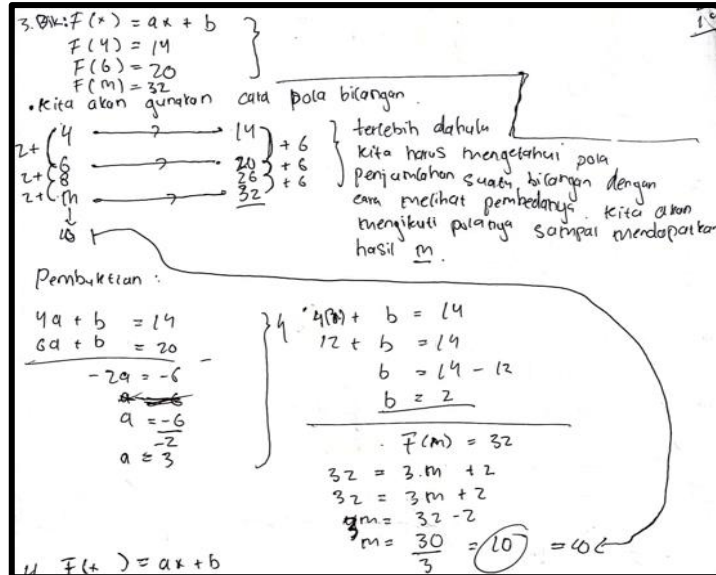 3. Dik: F(x) = ax + b
F(4) = 14
F(6) = 20
F(m) = 32
• Kita akan gunakan cara pola bilangan.
2+ 4 → 14 +6
2+ 6 → 20 +6
2+ 8 26 +6
m → 32
↓
10
terlebih dahulu
kita harus mengetahui pola
penjumlahan suatu bilangan dengan
cara melihat pembedanya. kita akan
mengikuti polanya sampai mendapatkan
hasil m.
Pembuktian :
4a + b = 14
6a + b = 20 -
-2a = -6
a = -6
-2
a = 3
4(3) + b = 14
12 + b = 14
b = 14 - 12
b = 2
F(m) = 32
32 = 3.m + 2
32 = 3m + 2
3m = 32 - 2
m = 30/3 = 10 = 10
4. F(x) = ax + b